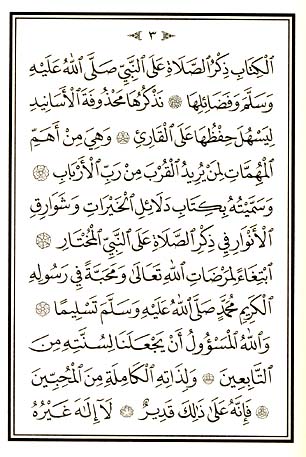 ٣
الْكِتَابِ ذِكْرُ الصَّلَاةِ عَلَى النَّبِيِّ صَلَّى اللهُ عَلَيْهِ
وَسَلَّمَ وَفَضَائِلِهَا ۞ نَذْكُرُهَا مَحْذُوفَةَ الْأَسَانِيدِ
لِيَسْهُلَ حِفْظُهَا عَلَى الْقَارِئِ ۞ وَهِيَ مِنْ أَهَمِّ
الْمُهِمَّاتِ لِمَنْ يُرِيدُ الْقُرْبَ مِنْ رَبِّ الْأَرْبَابِ ۞
وَسَمَّيْتُهُ بِكِتَابِ دَلَائِلِ الْخَيْرَاتِ وَشَوَارِقِ
الْأَنْوَارِ فِي ذِكْرِ الصَّلَاةِ عَلَى النَّبِيِّ الْمُخْتَارِ ۞
ابْتِغَاءً لِمَرْضَاتِ اللهِ تَعَالَى وَمَحَبَّةً فِي رَسُولِهِ
الْكَرِيمِ مُحَمَّدٍ صَلَّى اللهُ عَلَيْهِ وَسَلَّمَ تَسْلِيمًا ۞
وَاللهُ الْمَسْؤُولُ أَنْ يَجْعَلَنَا لِسُنَّتِهِ مِنَ
التَّابِعِينَ ۞ وَلِذَاتِهِ الْكَامِلَةِ مِنَ الْمُحِبِّينَ
۞ فَإِنَّهُ عَلَى ذَلِكَ قَدِيرٌ ۞ لَا إِلَهَ غَيْرُهُ